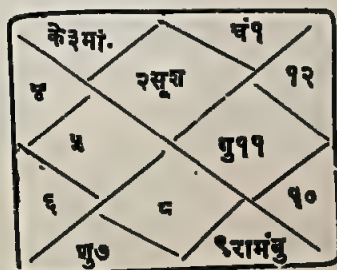 के३मां.
चं१
२सूश
१२
४
५
गु११
६
८
१०
शु७
९रामंबु